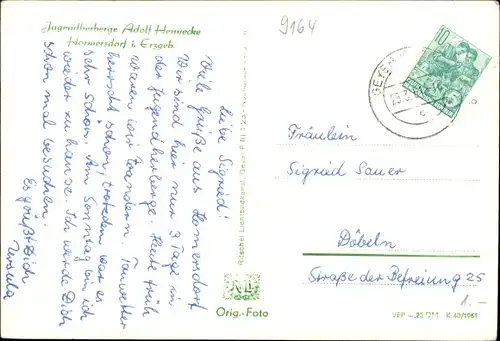 Jugendherberge Adolf Hennecke
Hormersdorf i. Erzgeb.
9164
10
Liebe Sigried!
Viele Grüße aus Hormersdorf
Wir sind hier nur 3 Tage in
der Jugendherberge. Heute früh
waren wir wandern. Tauwetter
herrscht schon, trotzdem war es
sehr schön. Am Sonntag bin ich
wieder zu hause. Ich werde Dich
schon mal besuchen.
Es grüßt Dich
Ursula
Orig.-Foto
Fräulein
Sigried Sauer
Döbeln
Straße der Befreiung 25
1.-
K 40/1961